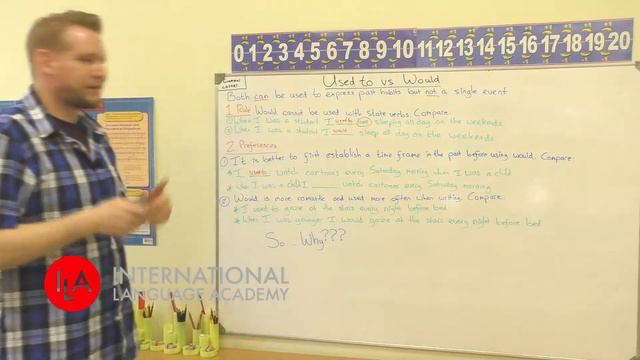 0 1 2 3 4 5 6 7 8 9 10 11 12 13 14 15 16 17 18 19 20
Grammar corner
Used to vs Would
Both can be used to express past habits but not a single event
1 Rule Would cannot be used with state verbs. Compare:
When I was a student I used to sleeping all day on the weekends
When I was a student I would sleep all day on the weekends
2 Preferences
① It is better to first establish a time frame in the past before using would. Compare
* I used to watch cartoons every Saturday morning when I was a child
* When I was a child I ____ watch cartoons every Saturday morning
② Would is more romantic and used more often when writing. Compare:
* I used to gaze at the stars every night before bed
* When I was younger I would gaze at the stars every night before bed
So... Why???
ILA
INTERNATIONAL
LANGUAGE ACADEMY